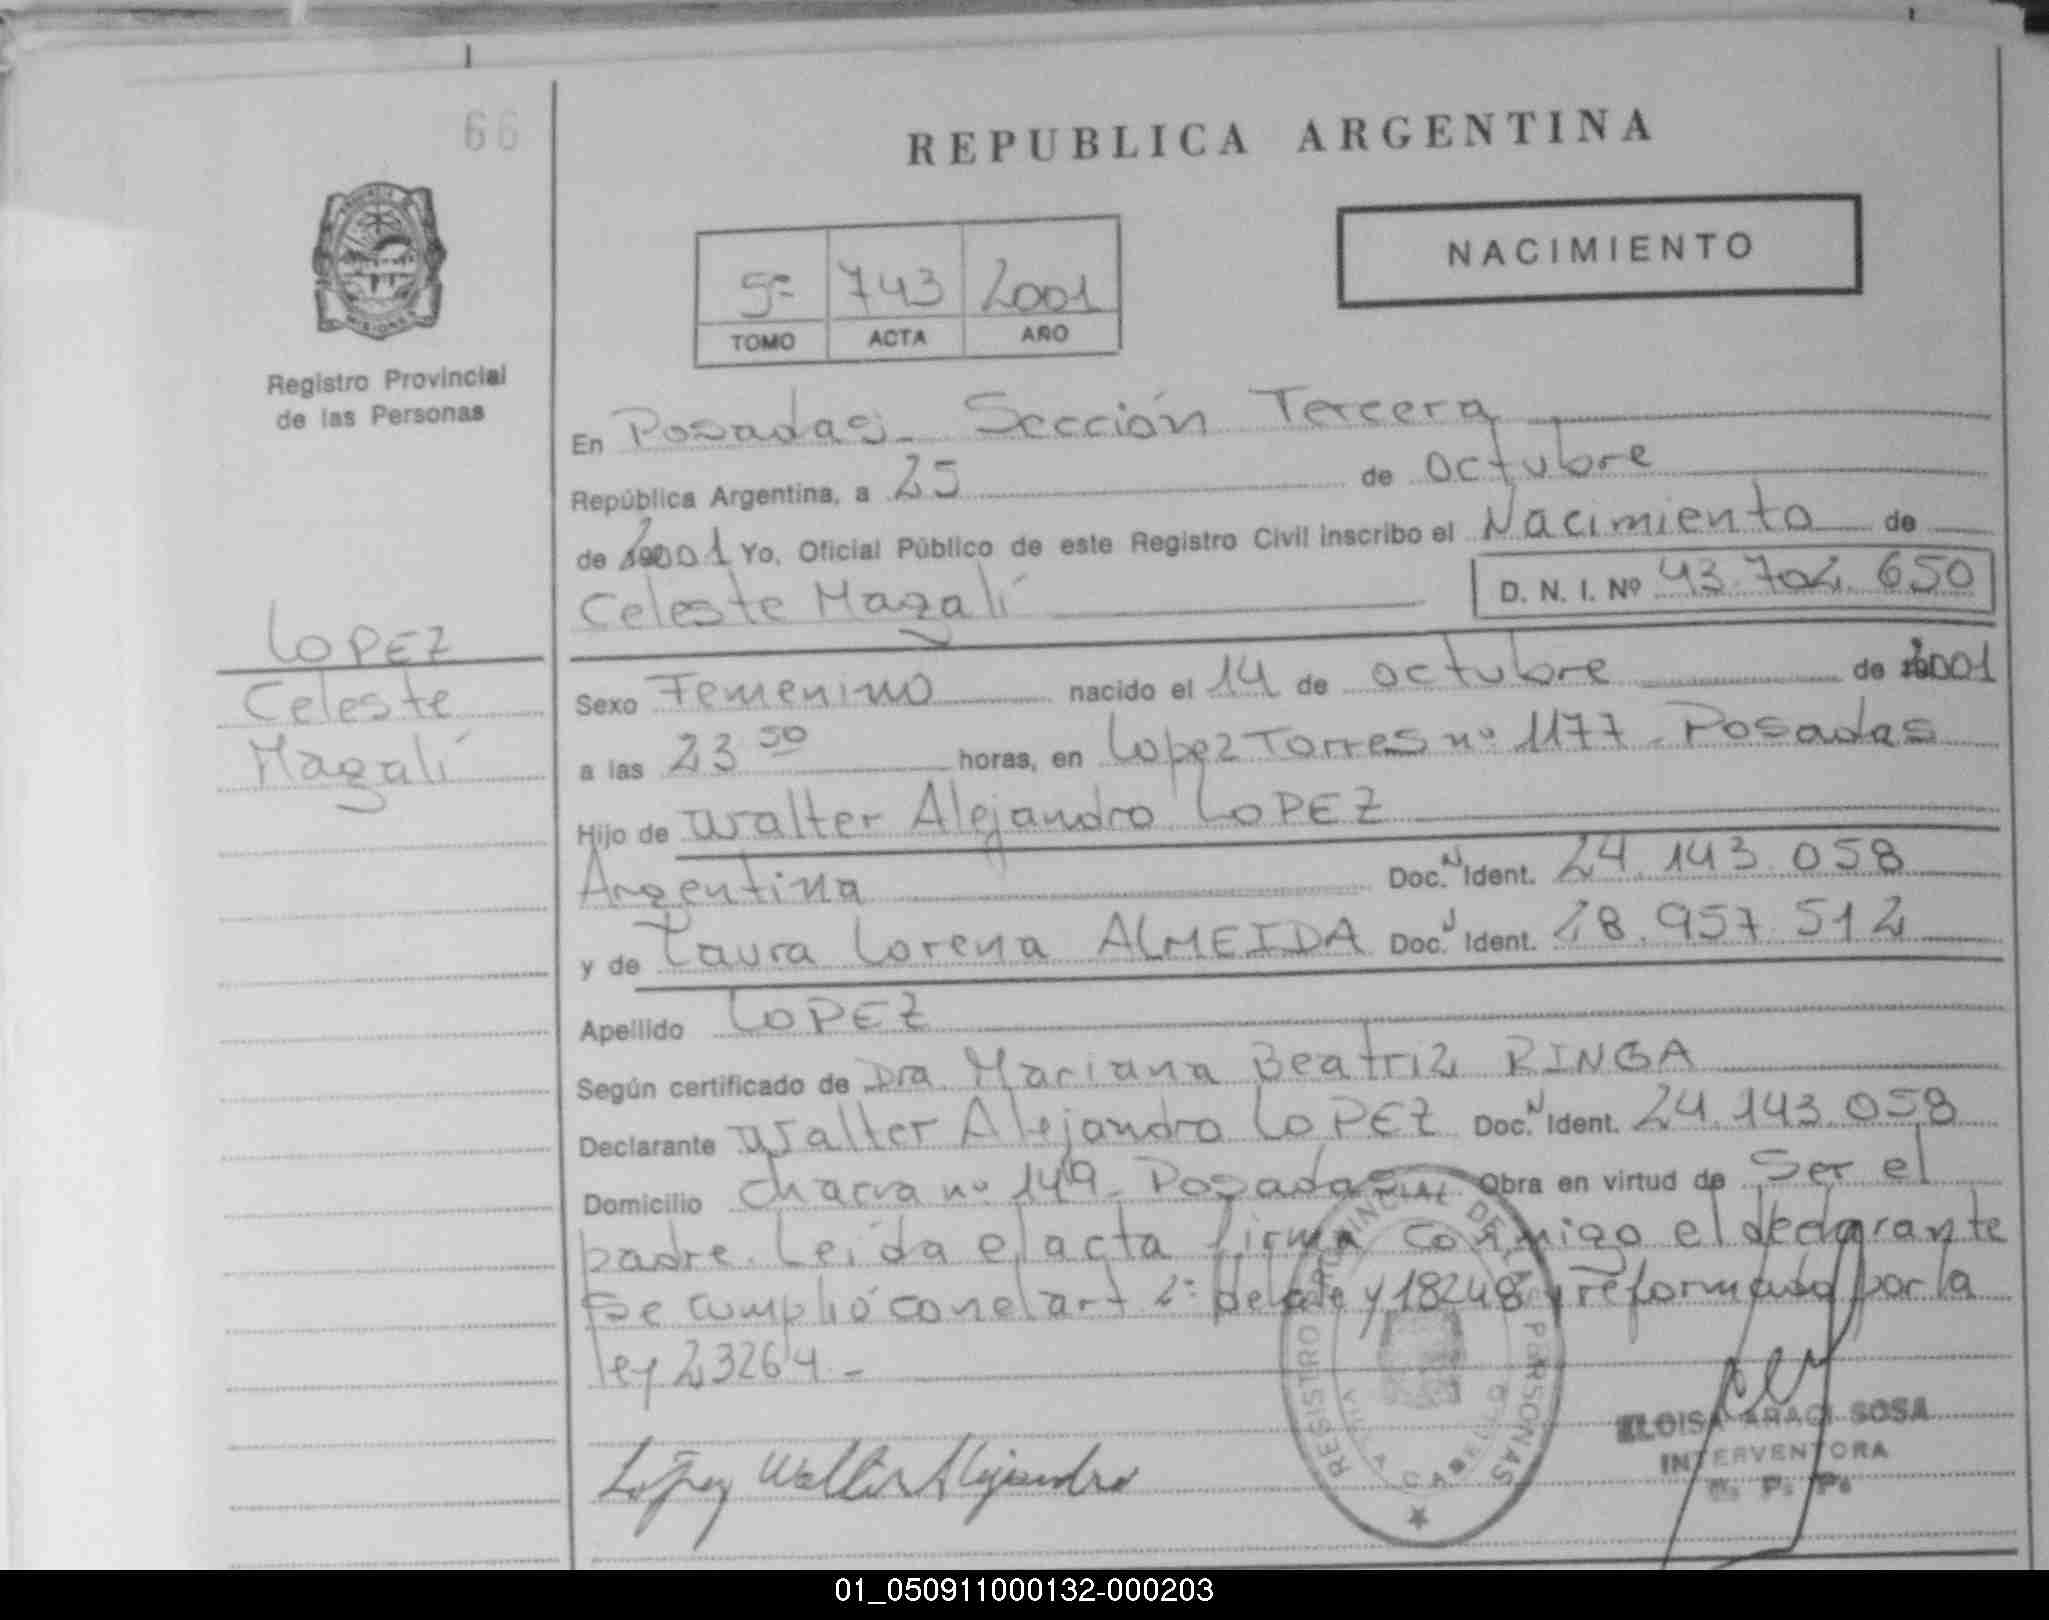 66
REPUBLICA ARGENTINA
NACIMIENTO
5º 743 2001
TOMO ACTA AÑO
PROVINCIA
MISIONES
Registro Provincial
de las Personas
En Posadas - Sección Tercera
República Argentina, a 25 de octubre
de 2001 Yo, Oficial Público de este Registro Civil inscribo el Nacimiento de
Celeste Magalí D. N. I. Nº 43.704.650
LOPEZ
Celeste
Magalí
Sexo Femenino nacido el 14 de octubre de 2001
a las 23 50 horas, en Lopez Torres nº 1177 - Posadas
Hijo de Walter Alejandro LOPEZ
Argentina Doc. N Ident. 24.143.058
y de Laura Lorena ALMEIDA Doc. Ident. 28.957.512
Apellido LOPEZ
Según certificado de Dra. Mariana Beatriz RINGA
Declarante Walter Alejandro LOPEZ Doc. N Ident. 24.143.058
Domicilio chacra nº 149 - Posadas Obra en virtud de Ser el
padre. Leída el acta firma conmigo el declarante
Se cumplió con el art 2º de la ley 18248 y reformado por la
ley 23264 -
López Walter Alejandro
REGISTRO PROVINCIAL DE LAS PERSONAS
ELOISA ARACI SOSA
INTERVENTORA
R. P. P.
01_050911000132-000203